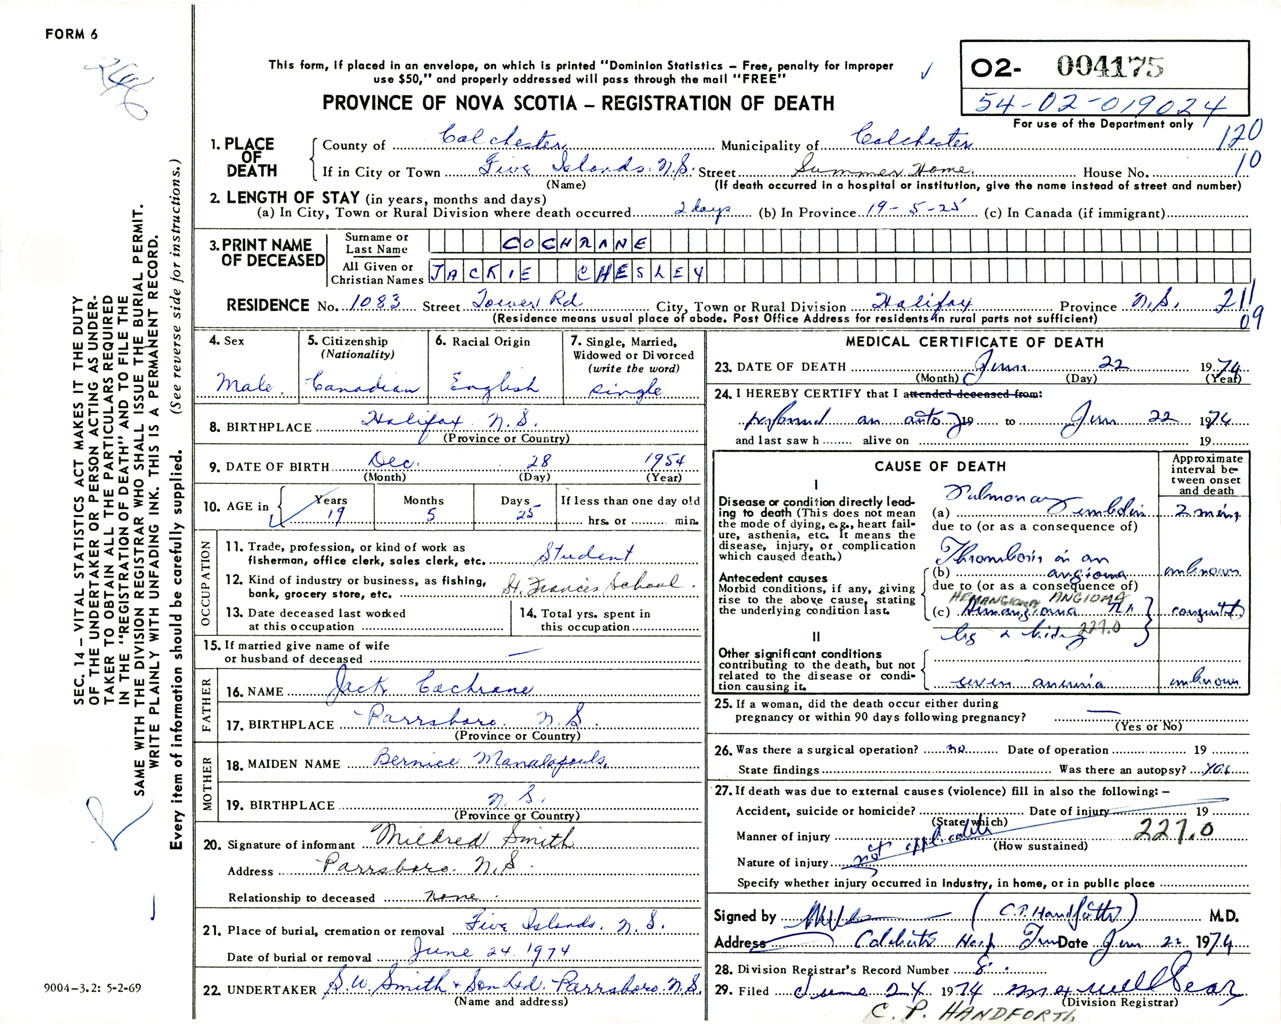 FORM 6
This form, if placed in an envelope, on which is printed "Dominion Statistics – Free, penalty for improper
use $50," and properly addressed will pass through the mail "FREE"
PROVINCE OF NOVA SCOTIA – REGISTRATION OF DEATH
O2- 004175
54-02-019024
For use of the Department only
120
10
1. PLACE OF DEATH
County of Colchester Municipality of Colchester
If in City or Town Five Islands. N.S. Street Summer Home. House No.
(Name) (If death occurred in a hospital or institution, give the name instead of street and number)
2. LENGTH OF STAY (in years, months and days)
(a) In City, Town or Rural Division where death occurred 2 days (b) In Province 19-5-25 (c) In Canada (if immigrant)
3. PRINT NAME OF DECEASED
Surname or Last Name COCHRANE
All Given or Christian Names JACKIE CHESLEY
RESIDENCE No. 1083 Street Tower Rd City, Town or Rural Division Halifax Province N.S. 211
09
(Residence means usual place of abode. Post Office Address for residents in rural parts not sufficient)
4. Sex
Male.
5. Citizenship
(Nationality)
Canadian
6. Racial Origin
English
7. Single, Married,
Widowed or Divorced
(write the word)
single
8. BIRTHPLACE Halifax N.S.
(Province or Country)
9. DATE OF BIRTH Dec. 28 1954
(Month) (Day) (Year)
10. AGE in
Years Months Days If less than one day old
19 5 25 hrs. or min.
OCCUPATION
11. Trade, profession, or kind of work as
fisherman, office clerk, sales clerk, etc. Student
12. Kind of industry or business, as fishing,
bank, grocery store, etc. St. Francis School.
13. Date deceased last worked
at this occupation
14. Total yrs. spent in
this occupation
15. If married give name of wife
or husband of deceased —
FATHER
16. NAME Jack Cochrane
17. BIRTHPLACE Parrsboro N.S.
(Province or Country)
MOTHER
18. MAIDEN NAME Bernice
19. BIRTHPLACE N.S.
(Province or Country)
20. Signature of informant Mildred Smith
Address Parrsboro. N.S.
Relationship to deceased none.
21. Place of burial, cremation or removal Five Islands. N.S.
Date of burial or removal June 24. 1974
22. UNDERTAKER S.W. Smith & Son Ltd. Parrsboro. N.S.
(Name and address)
MEDICAL CERTIFICATE OF DEATH
23. DATE OF DEATH June 22 1974
(Month) (Day) (Year)
24. I HEREBY CERTIFY that I attended deceased from:
performed an 19 to June 22 1974
and last saw h alive on 19
CAUSE OF DEATH
Approximate
interval be-
tween onset
and death
I
Disease or condition directly lead-
ing to death (This does not mean
the mode of dying, e.g., heart fail-
ure, asthenia, etc. It means the
disease, injury, or complication
which caused death.)
(a) Pulmonary
due to (or as a consequence of)
Antecedent causes
Morbid conditions, if any, giving
rise to the above cause, stating
the underlying condition last.
Thrombosis in an
(b) angioma unknown
due to (or as a consequence of)
HEMANGIOMA ANGIOMA
(c) Hemangioma
leg & kidney 227.0
II
Other significant conditions
contributing to the death, but not
related to the disease or condi-
tion causing it.
anemia unknown
25. If a woman, did the death occur either during
pregnancy or within 90 days following pregnancy? —
(Yes or No)
26. Was there a surgical operation? no Date of operation 19
State findings Was there an autopsy? yes
27. If death was due to external causes (violence) fill in also the following: –
Accident, suicide or homicide? Date of injury 19
(State which)
Manner of injury 227.0
(How sustained)
not applicable
Nature of injury
Specify whether injury occurred in Industry, in home, or in public place
Signed by (C.P. Handforth) M.D.
Address Colchester Hosp Date June 22 1974
28. Division Registrar's Record Number 8.
29. Filed June 24 1974
(Division Registrar)
C. P. HANDFORTH
SEC. 14 – VITAL STATISTICS ACT MAKES IT THE DUTY
OF THE UNDERTAKER OR PERSON ACTING AS UNDER-
TAKER TO OBTAIN ALL THE PARTICULARS REQUIRED
IN THE "REGISTRATION OF DEATH" AND TO FILE THE
SAME WITH THE DIVISION REGISTRAR WHO SHALL ISSUE THE BURIAL PERMIT.
WRITE PLAINLY WITH UNFADING INK. THIS IS A PERMANENT RECORD.
Every item of information should be carefully supplied. (See reverse side for instructions.)
9004-3.2: 5-2-69